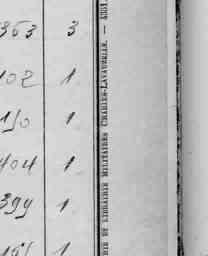 353 3
102 1
150 1
404 1
399 1
1
ET LIBRAIRIE MILITAIRES CHARLES-LAVAUZELLE. —